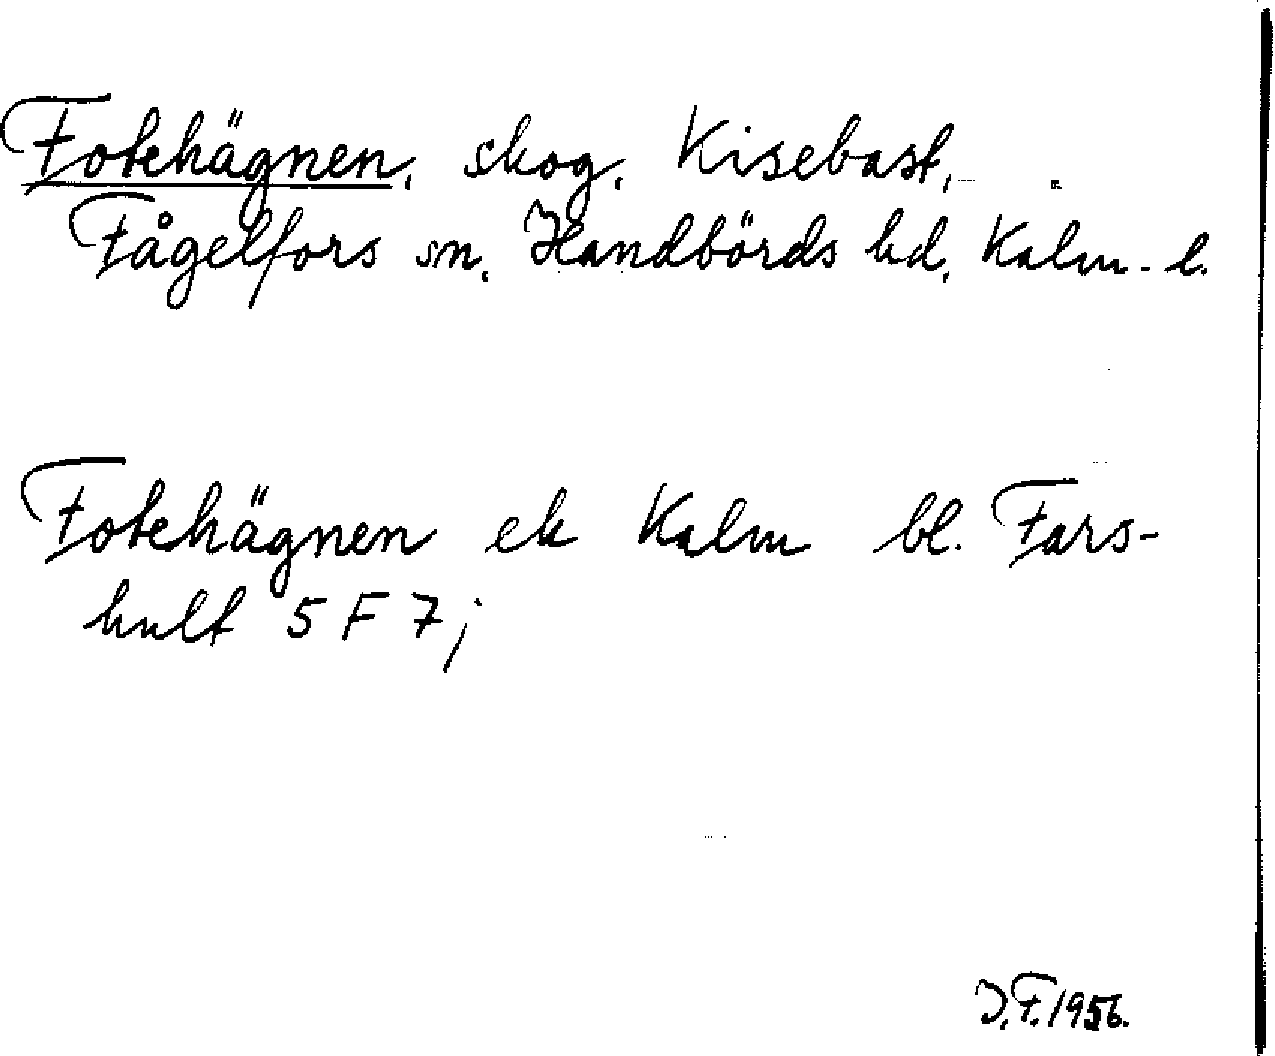 Fotehägnen, skog, Kisebast,
Fågelfors sn, Handbörds hd, Kalm. l.
Fotehägnen ek Kalm bl. Fars-
hult 5 F 7 j
J.F. 1956.